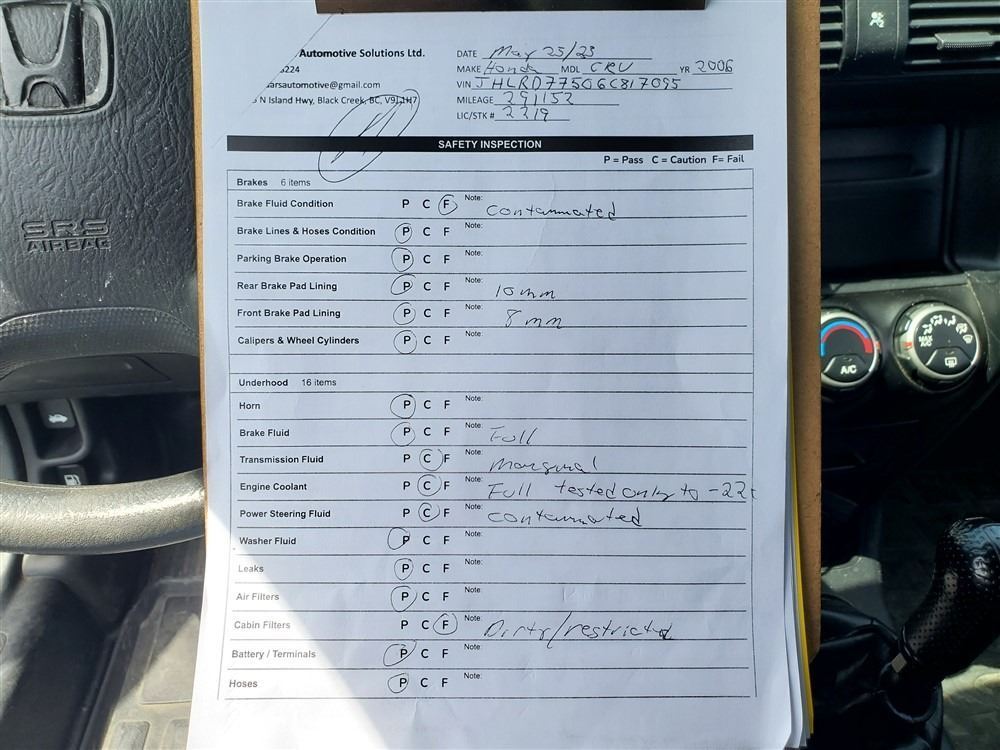 Automotive Solutions Ltd.
3224
arsautomotive@gmail.com
N Island Hwy, Black Creek, BC, V9J1H7
DATE May 25/23
MAKE Honda MDL CRV YR 2006
VIN JHLRD77506C817095
MILEAGE 291152
LIC/STK # 2219
SAFETY INSPECTION
P = Pass C = Caution F= Fail
Brakes 6 items
Brake Fluid Condition P C F Note: Contaminated
Brake Lines & Hoses Condition P C F Note:
Parking Brake Operation P C F Note:
Rear Brake Pad Lining P C F Note: 10mm
Front Brake Pad Lining P C F Note: 8mm
Calipers & Wheel Cylinders P C F Note:
Underhood 16 items
Horn P C F Note:
Brake Fluid P C F Note: Full
Transmission Fluid P C F Note: Marginal
Engine Coolant P C F Note: Full tested only to -22
Power Steering Fluid P C F Note: Contaminated
Washer Fluid P C F Note:
Leaks P C F Note:
Air Filters P C F Note:
Cabin Filters P C F Note: Dirty/restricted
Battery / Terminals P C F Note:
Hoses P C F Note:
SRS
AIRBAG
MAX A/C
A/C